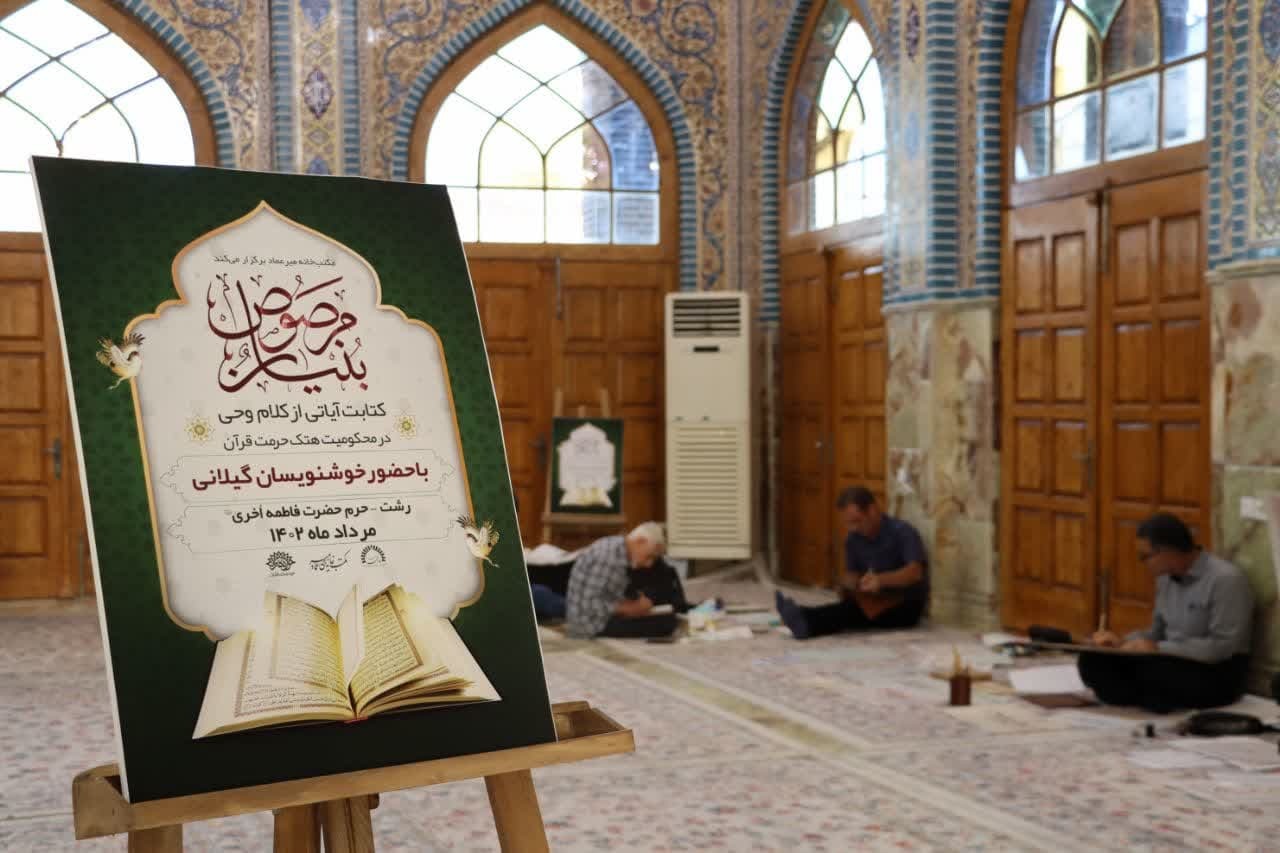 مکتب‌خانه میرعماد برگزار می‌کند
بُنیان مرصوص
کتابت آیاتی از کلام وحی
در محکومیت هتک حرمت قرآن
با حضور خوشنویسان گیلانی
رشت - حرم حضرت فاطمه اُخری
مرداد ماه ۱۴۰۲